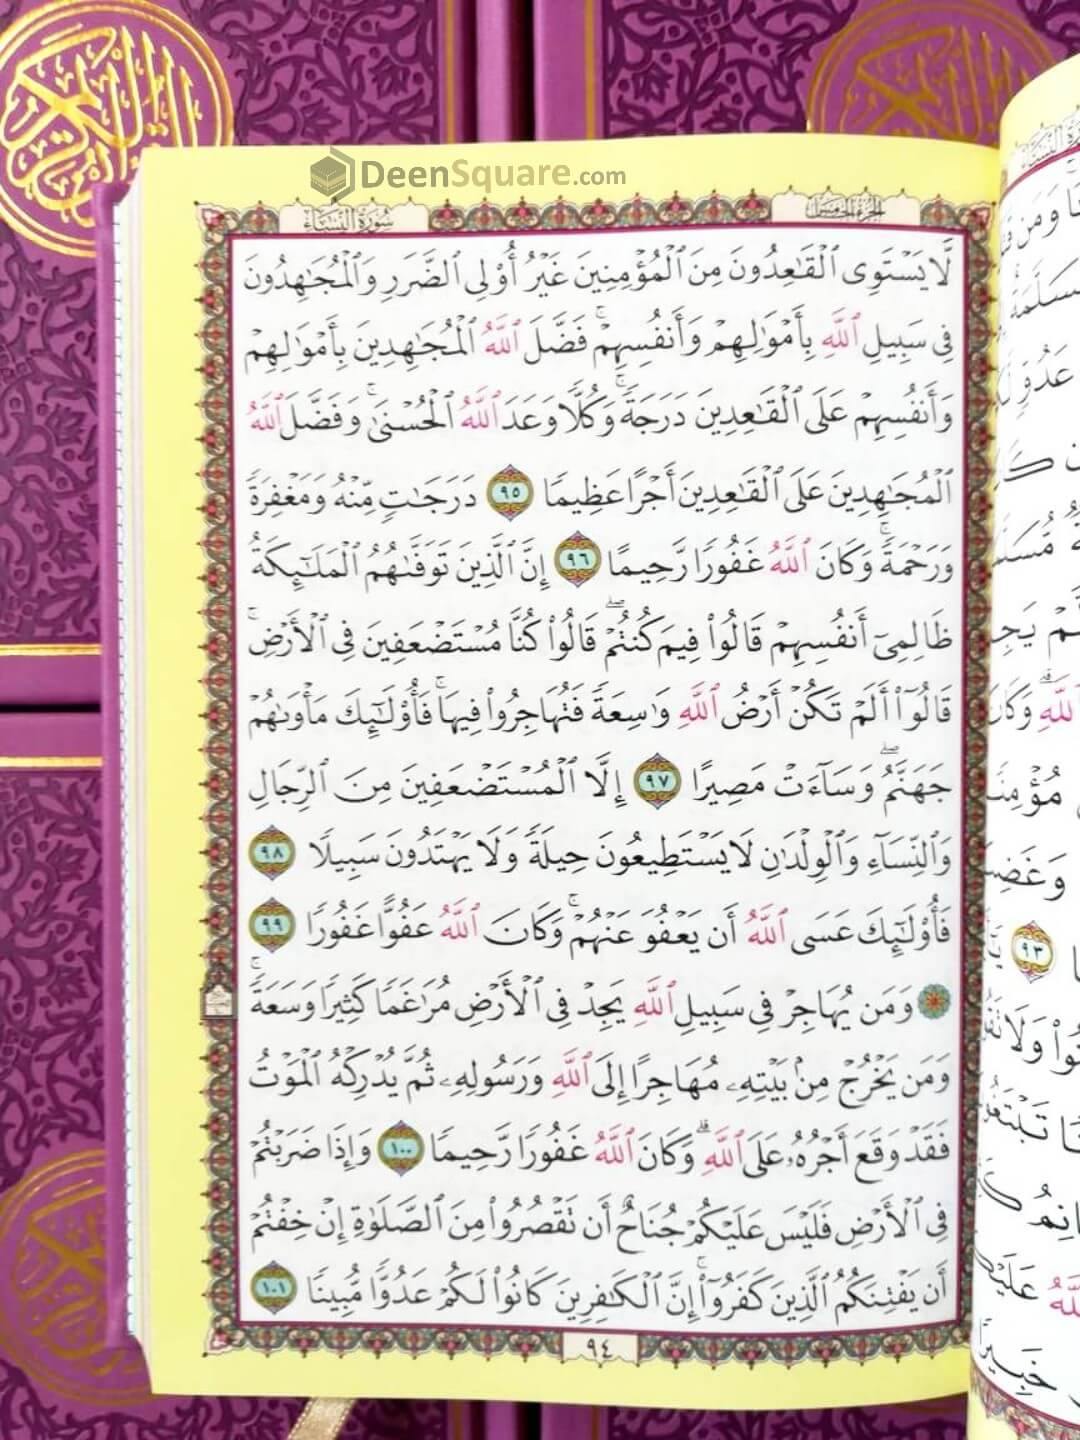 DeenSquare.com
الجزء الخامس
سورة النساء
لَّا يَسْتَوِى ٱلْقَٰعِدُونَ مِنَ ٱلْمُؤْمِنِينَ غَيْرُ أُو۟لِى ٱلضَّرَرِ وَٱلْمُجَٰهِدُونَ
فِى سَبِيلِ ٱللَّهِ بِأَمْوَٰلِهِمْ وَأَنفُسِهِمْ ۚ فَضَّلَ ٱللَّهُ ٱلْمُجَٰهِدِينَ بِأَمْوَٰلِهِمْ
وَأَنفُسِهِمْ عَلَى ٱلْقَٰعِدِينَ دَرَجَةً ۚ وَكُلًّا وَعَدَ ٱللَّهُ ٱلْحُسْنَىٰ ۚ وَفَضَّلَ ٱللَّهُ
ٱلْمُجَٰهِدِينَ عَلَى ٱلْقَٰعِدِينَ أَجْرًا عَظِيمًا ٩٥ دَرَجَٰتٍ مِّنْهُ وَمَغْفِرَةً
وَرَحْمَةً ۚ وَكَانَ ٱللَّهُ غَفُورًا رَّحِيمًا ٩٦ إِنَّ ٱلَّذِينَ تَوَفَّىٰهُمُ ٱلْمَلَٰٓئِكَةُ
ظَالِمِىٓ أَنفُسِهِمْ قَالُوا۟ فِيمَ كُنتُمْ ۖ قَالُوا۟ كُنَّا مُسْتَضْعَفِينَ فِى ٱلْأَرْضِ ۚ
قَالُوٓا۟ أَلَمْ تَكُنْ أَرْضُ ٱللَّهِ وَٰسِعَةً فَتُهَاجِرُوا۟ فِيهَا ۚ فَأُو۟لَٰٓئِكَ مَأْوَىٰهُمْ
جَهَنَّمُ ۖ وَسَآءَتْ مَصِيرًا ٩٧ إِلَّا ٱلْمُسْتَضْعَفِينَ مِنَ ٱلرِّجَالِ
وَٱلنِّسَآءِ وَٱلْوِلْدَٰنِ لَا يَسْتَطِيعُونَ حِيلَةً وَلَا يَهْتَدُونَ سَبِيلًا ٩٨
فَأُو۟لَٰٓئِكَ عَسَى ٱللَّهُ أَن يَعْفُوَ عَنْهُمْ ۚ وَكَانَ ٱللَّهُ عَفُوًّا غَفُورًا ٩٩
۞ وَمَن يُهَاجِرْ فِى سَبِيلِ ٱللَّهِ يَجِدْ فِى ٱلْأَرْضِ مُرَٰغَمًا كَثِيرًا وَسَعَةً ۚ
وَمَن يَخْرُجْ مِنۢ بَيْتِهِۦ مُهَاجِرًا إِلَى ٱللَّهِ وَرَسُولِهِۦ ثُمَّ يُدْرِكْهُ ٱلْمَوْتُ
فَقَدْ وَقَعَ أَجْرُهُۥ عَلَى ٱللَّهِ ۗ وَكَانَ ٱللَّهُ غَفُورًا رَّحِيمًا ١٠٠ وَإِذَا ضَرَبْتُمْ
فِى ٱلْأَرْضِ فَلَيْسَ عَلَيْكُمْ جُنَاحٌ أَن تَقْصُرُوا۟ مِنَ ٱلصَّلَوٰةِ إِنْ خِفْتُمْ
أَن يَفْتِنَكُمُ ٱلَّذِينَ كَفَرُوٓا۟ ۚ إِنَّ ٱلْكَٰفِرِينَ كَانُوا۟ لَكُمْ عَدُوًّا مُّبِينًا ١٠١
٩٤